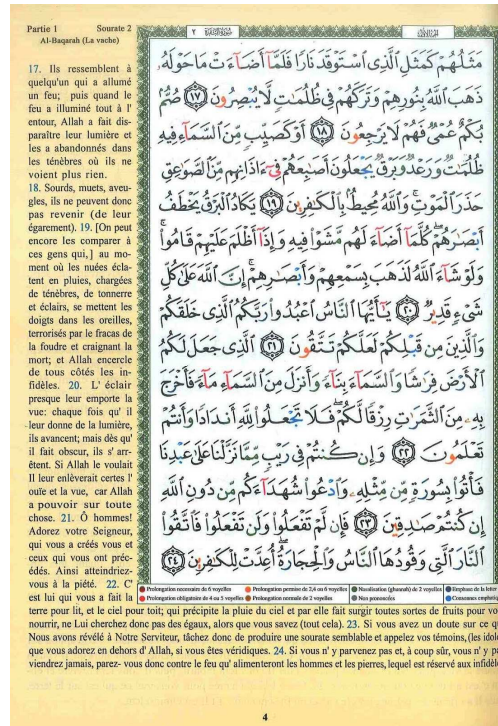 Partie 1 Sourate 2
Al-Baqarah (La vache)
17. Ils ressemblent à
quelqu'un qui a allumé
un feu; puis quand le
feu a illuminé tout à l'
entour, Allah a fait dis-
paraître leur lumière et
les a abandonnés dans
les ténèbres où ils ne
voient plus rien.
18. Sourds, muets, aveu-
gles, ils ne peuvent donc
pas revenir (de leur
égarement). 19. [On peut
encore les comparer à
ces gens qui,] au mo-
ment où les nuées écla-
tent en pluies, chargées
de ténèbres, de tonnerre
et éclairs, se mettent les
doigts dans les oreilles,
terrorisés par le fracas de
la foudre et craignant la
mort; et Allah encercle
de tous côtés les in-
fidèles. 20. L' éclair
presque leur emporte la
vue: chaque fois qu' il
leur donne de la lumière,
ils avancent; mais dès qu'
il fait obscur, ils s' arr-
êtent. Si Allah le voulait
Il leur enlèverait certes l'
ouïe et la vue, car Allah
a pouvoir sur toute
chose. 21. Ô hommes!
Adorez votre Seigneur,
qui vous a créés vous et
ceux qui vous ont préc-
édés. Ainsi atteindriez-
vous à la piété. 22. C'
est lui qui vous a fait la
terre pour lit, et le ciel pour toit; qui précipite la pluie du ciel et par elle fait surgir toutes sortes de fruits pour vo
nourrir, ne Lui cherchez donc pas des égaux, alors que vous savez (tout cela). 23. Si vous avez un doute sur ce q
Nous avons révélé à Notre Serviteur, tâchez donc de produire une sourate semblable et appelez vos témoins, (les idol
que vous adorez en dehors d' Allah, si vous êtes véridiques. 24. Si vous n' y parvenez pas et, à coup sûr, vous n' y p
viendrez jamais, parez- vous donc contre le feu qu' alimenteront les hommes et les pierres, lequel est réservé aux infidèl
مَثَلُهُمْ كَمَثَلِ ٱلَّذِى ٱسْتَوْقَدَ نَارًا فَلَمَّآ أَضَآءَتْ مَا حَوْلَهُۥ
ذَهَبَ ٱللَّهُ بِنُورِهِمْ وَتَرَكَهُمْ فِى ظُلُمَٰتٍ لَّا يُبْصِرُونَ ١٧ صُمٌّۢ
بُكْمٌ عُمْىٌ فَهُمْ لَا يَرْجِعُونَ ١٨ أَوْ كَصَيِّبٍ مِّنَ ٱلسَّمَآءِ فِيهِ
ظُلُمَٰتٌ وَرَعْدٌ وَبَرْقٌ يَجْعَلُونَ أَصَٰبِعَهُمْ فِىٓ ءَاذَانِهِم مِّنَ ٱلصَّوَٰعِقِ
حَذَرَ ٱلْمَوْتِ وَٱللَّهُ مُحِيطٌۢ بِٱلْكَٰفِرِينَ ١٩ يَكَادُ ٱلْبَرْقُ يَخْطَفُ
أَبْصَٰرَهُمْ كُلَّمَآ أَضَآءَ لَهُم مَّشَوْا۟ فِيهِ وَإِذَآ أَظْلَمَ عَلَيْهِمْ قَامُوا۟
وَلَوْ شَآءَ ٱللَّهُ لَذَهَبَ بِسَمْعِهِمْ وَأَبْصَٰرِهِمْ إِنَّ ٱللَّهَ عَلَىٰ كُلِّ
شَىْءٍ قَدِيرٌ ٢٠ يَٰٓأَيُّهَا ٱلنَّاسُ ٱعْبُدُوا۟ رَبَّكُمُ ٱلَّذِى خَلَقَكُمْ
وَٱلَّذِينَ مِن قَبْلِكُمْ لَعَلَّكُمْ تَتَّقُونَ ٢١ ٱلَّذِى جَعَلَ لَكُمُ
ٱلْأَرْضَ فِرَٰشًا وَٱلسَّمَآءَ بِنَآءً وَأَنزَلَ مِنَ ٱلسَّمَآءِ مَآءً فَأَخْرَجَ
بِهِۦ مِنَ ٱلثَّمَرَٰتِ رِزْقًا لَّكُمْ فَلَا تَجْعَلُوا۟ لِلَّهِ أَندَادًا وَأَنتُمْ
تَعْلَمُونَ ٢٢ وَإِن كُنتُمْ فِى رَيْبٍ مِّمَّا نَزَّلْنَا عَلَىٰ عَبْدِنَا
فَأْتُوا۟ بِسُورَةٍ مِّن مِّثْلِهِۦ وَٱدْعُوا۟ شُهَدَآءَكُم مِّن دُونِ ٱللَّهِ
إِن كُنتُمْ صَٰدِقِينَ ٢٣ فَإِن لَّمْ تَفْعَلُوا۟ وَلَن تَفْعَلُوا۟ فَٱتَّقُوا۟
ٱلنَّارَ ٱلَّتِى وَقُودُهَا ٱلنَّاسُ وَٱلْحِجَارَةُ أُعِدَّتْ لِلْكَٰفِرِينَ ٢٤
Prolongation necessaire de 6 voyelles Prolongation permise de 2,4 ou 6 voyelles Nasalisation (ghunnah) de 2 voyelles Emphase de la lettre
Prolongation obligatoire de 4 ou 5 voyelles Prolongation normale de 2 voyelles Non prononcées Consonnes emphatiq
4